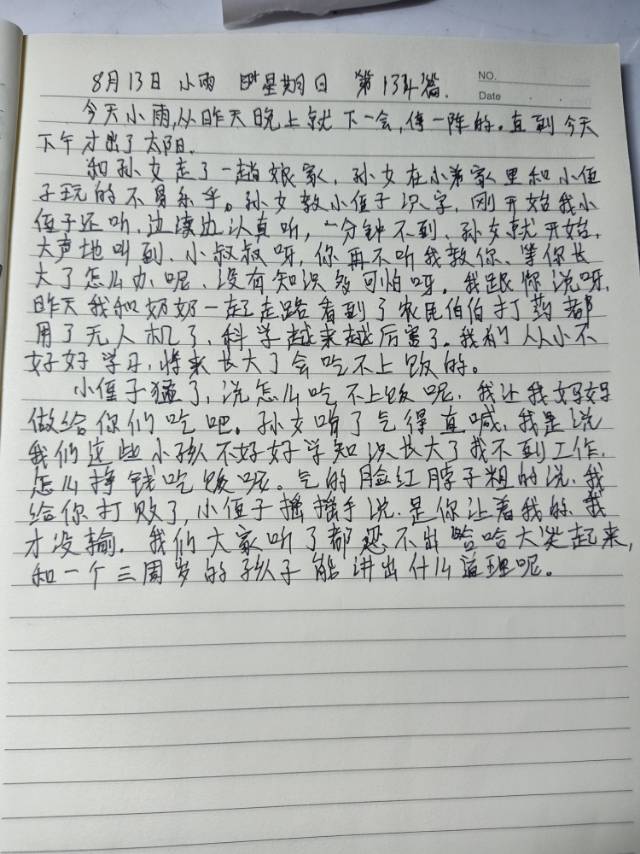 8月13日 小雨 星期日 第134篇.
NO.
Date
今天小雨,从昨天晚上就下一会,停一阵的.直到今天
下午才出了太阳.
和孙女走了一趟娘家,孙女在小弟家里和小侄
子玩的不易乐乎。孙女教小侄子识字,刚开始我小
侄子还听,边读边认真听,一分钟不到,孙女就开始,
大声地叫到,小叔叔呀,你再不听我教你,等你长
大了怎么办呢,没有知识多可怕呀。我跟你说呀,
昨天我和奶奶一起走路看到了农民伯伯打药都
用了无人机了,科学越来越厉害了。我们从小不
好好学习,将来长大了会吃不上饭的。
小侄子猛了,说怎么吃不上饭呢,我让我妈妈
做给你们吃吧。孙女听了气得直喊,我是说
我们这些小孩不好好学知识长大了找不到工作,
怎么挣钱吃饭呢。气的脸红脖子粗的说,我
给你打败了,小侄子摇摇手说.是你让着我的,我
才没输.我们大家听了都忍不出哈哈大笑起来,
和一个三周岁的孩子能讲出什么道理呢。